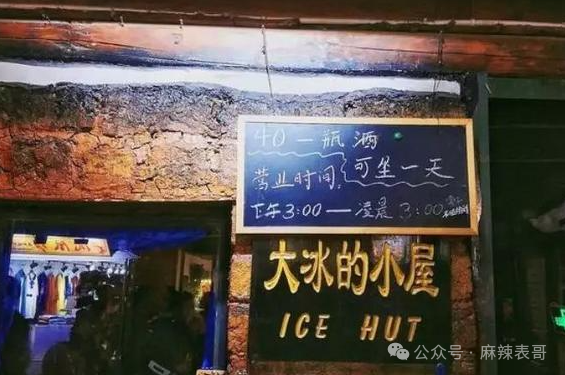 40一瓶酒
可坐一天
营业时间:
下午3:00—凌晨3:00
大冰的小屋
ICE HUT
公众号·麻辣表哥